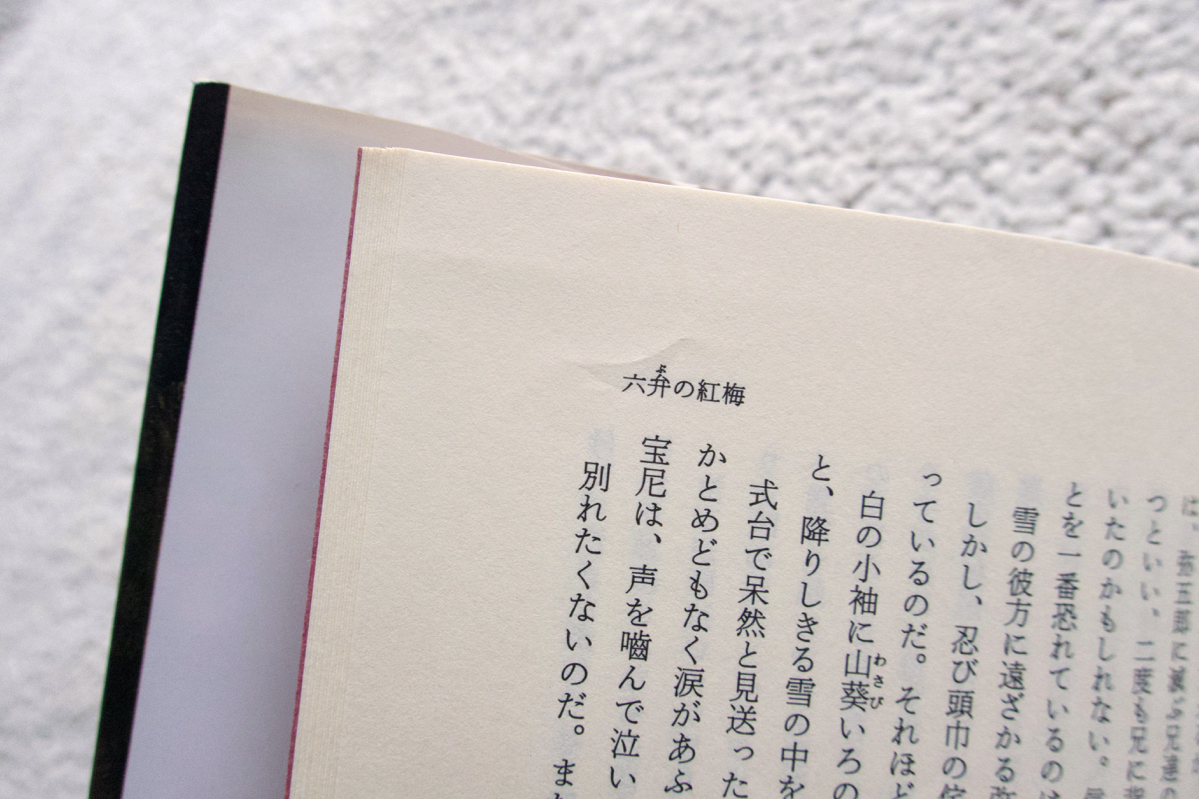 六弁の紅梅
よ
つといい、二度も兄に
いたのかもしれない。
とを一番恐れているのは
雪の彼方に遠ざかる弥
しかし、忍び頭巾の侘
っているのだ。それほど
白の小袖に山葵いろの
わさび
と、降りしきる雪の中を
式台で呆然と見送った
かとめどもなく涙があふ
宝尼は、声を嚙んで泣い
別れたくないのだ。また